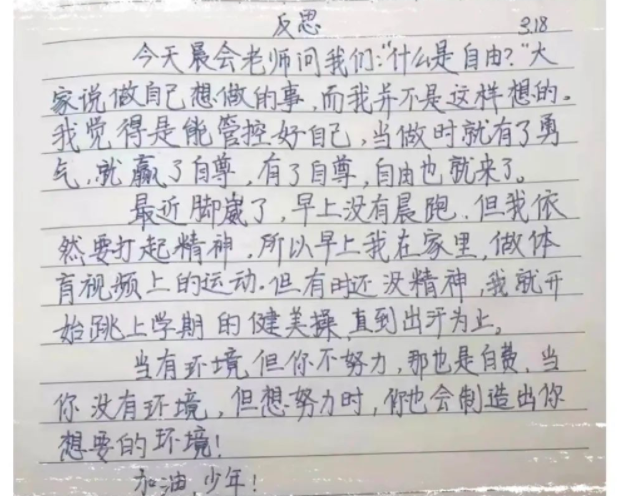 反思 3.18
今天晨会老师问我们:“什么是自由?”大
家说做自己想做的事,而我并不是这样想的。
我觉得是能管控好自己,当做时就有了勇
气,就赢了自尊,有了自尊,自由也就来了。
最近脚崴了,早上没有晨跑.但我依
然要打起精神.所以早上我在家里,做体
育视频上的运动.但有时还没精神,我就开
始跳上学期的健美操,直到出汗为止。
当有环境,但你不努力,那也是白费,当
你没有环境,但想努力时,你也会制造出你
想要的环境!
加油,少年!